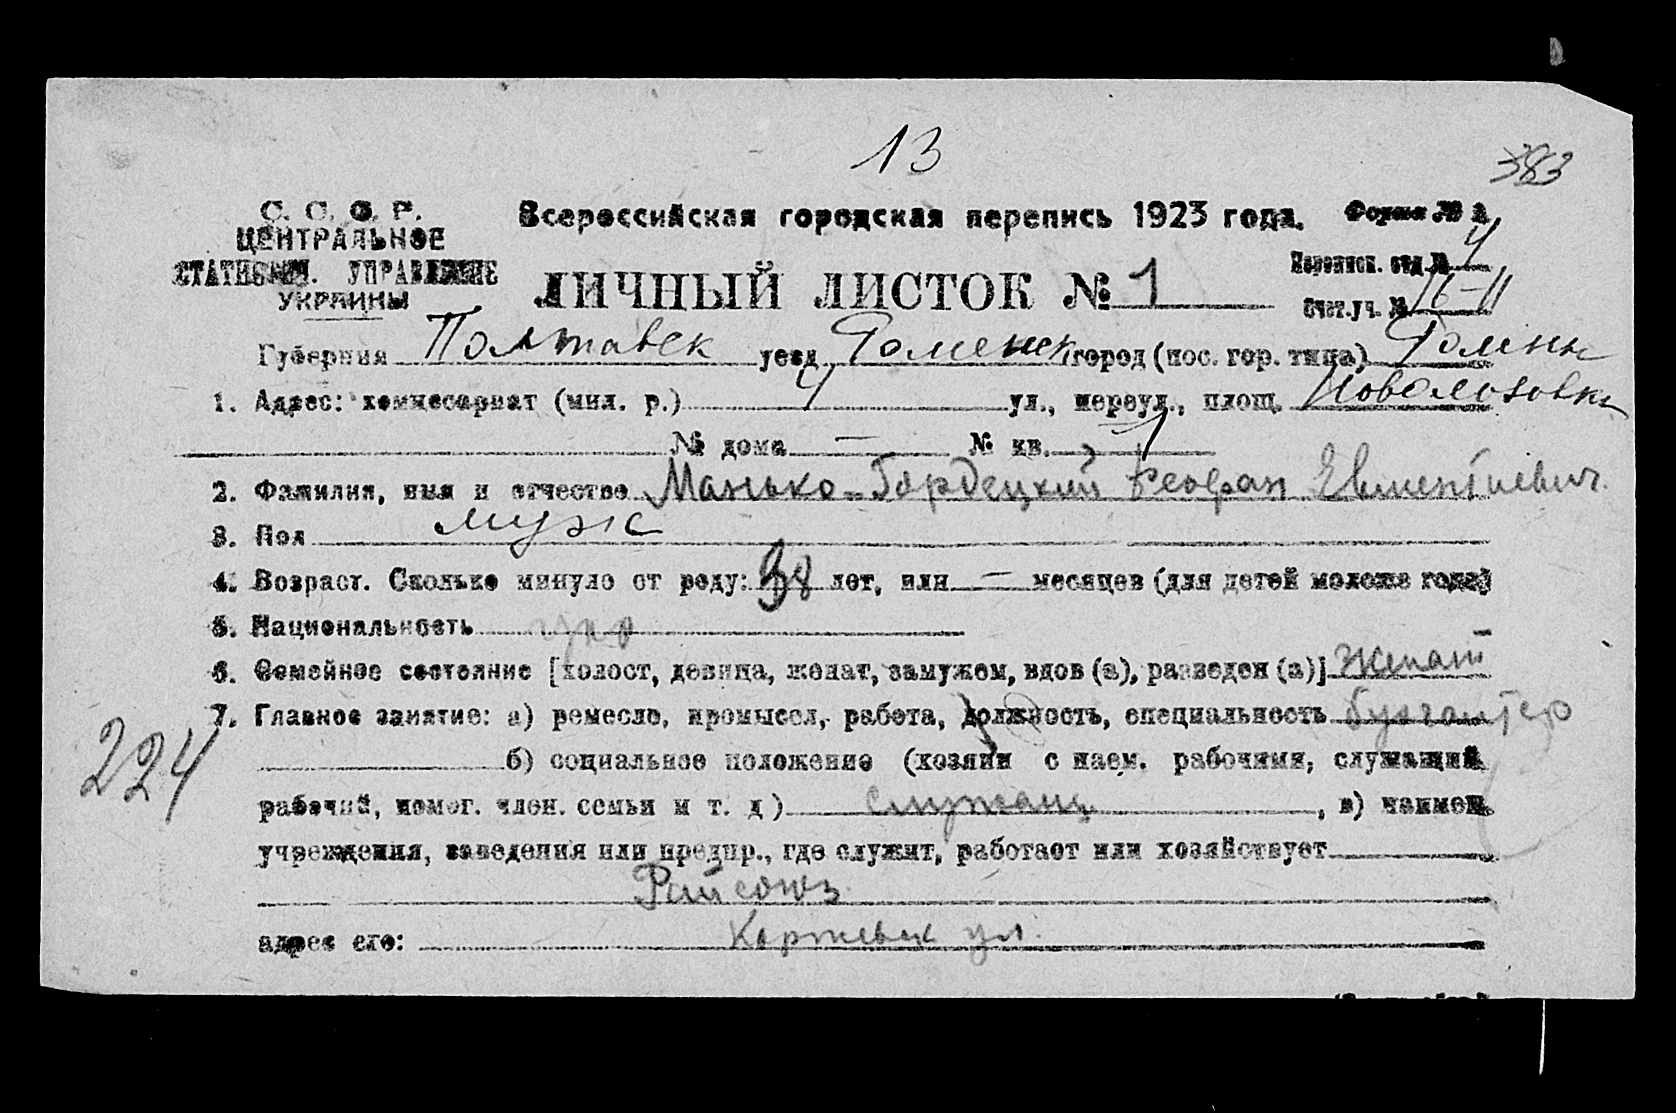 13
383
С. С. С. Р.
ЦЕНТРАЛЬНОЕ
СТАТИСТИЧ. УПРАВЛЕНИЕ
УКРАИНЫ
Всероссийская городская перепись 1923 года.
Форма № 2
ЛИЧНЫЙ ЛИСТОК № 1
Переписн. отд. № 4
Счет. уч. № 16-11
Губерния Полтавск уезд Роменск город (пос. гор. типа) Ромны
1. Адрес: комиссариат (мил. р.) 4 ул., переул., площ.
№ дома — № кв. 1
2. Фамилия, имя и отчество Манько-Бордецкий Феофан
3. Пол муж
4. Возраст. Сколько минуло от роду: 38 лет, или — месяцев (для детей моложе года)
5. Национальность укр
6. Семейное состояние [холост, девица, женат, замужем, вдов (а), разведен (а)] Женат
7. Главное занятие: а) ремесло, промысел, работа, должность, специальность бухгалтер
224
б) социальное положение (хозяин с наем. рабочими, служащий,
рабочий, помог. член. семьи и т. д) служащ , в) наимен.
учреждения, заведения или предпр., где служит, работает или хозяйствует
Райсоюз
адрес его: ул.